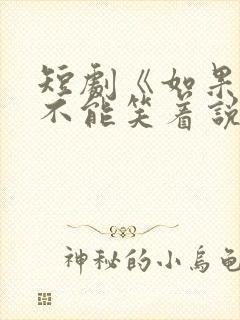 短劇《如果
不能笑着説
神秘的小烏龜